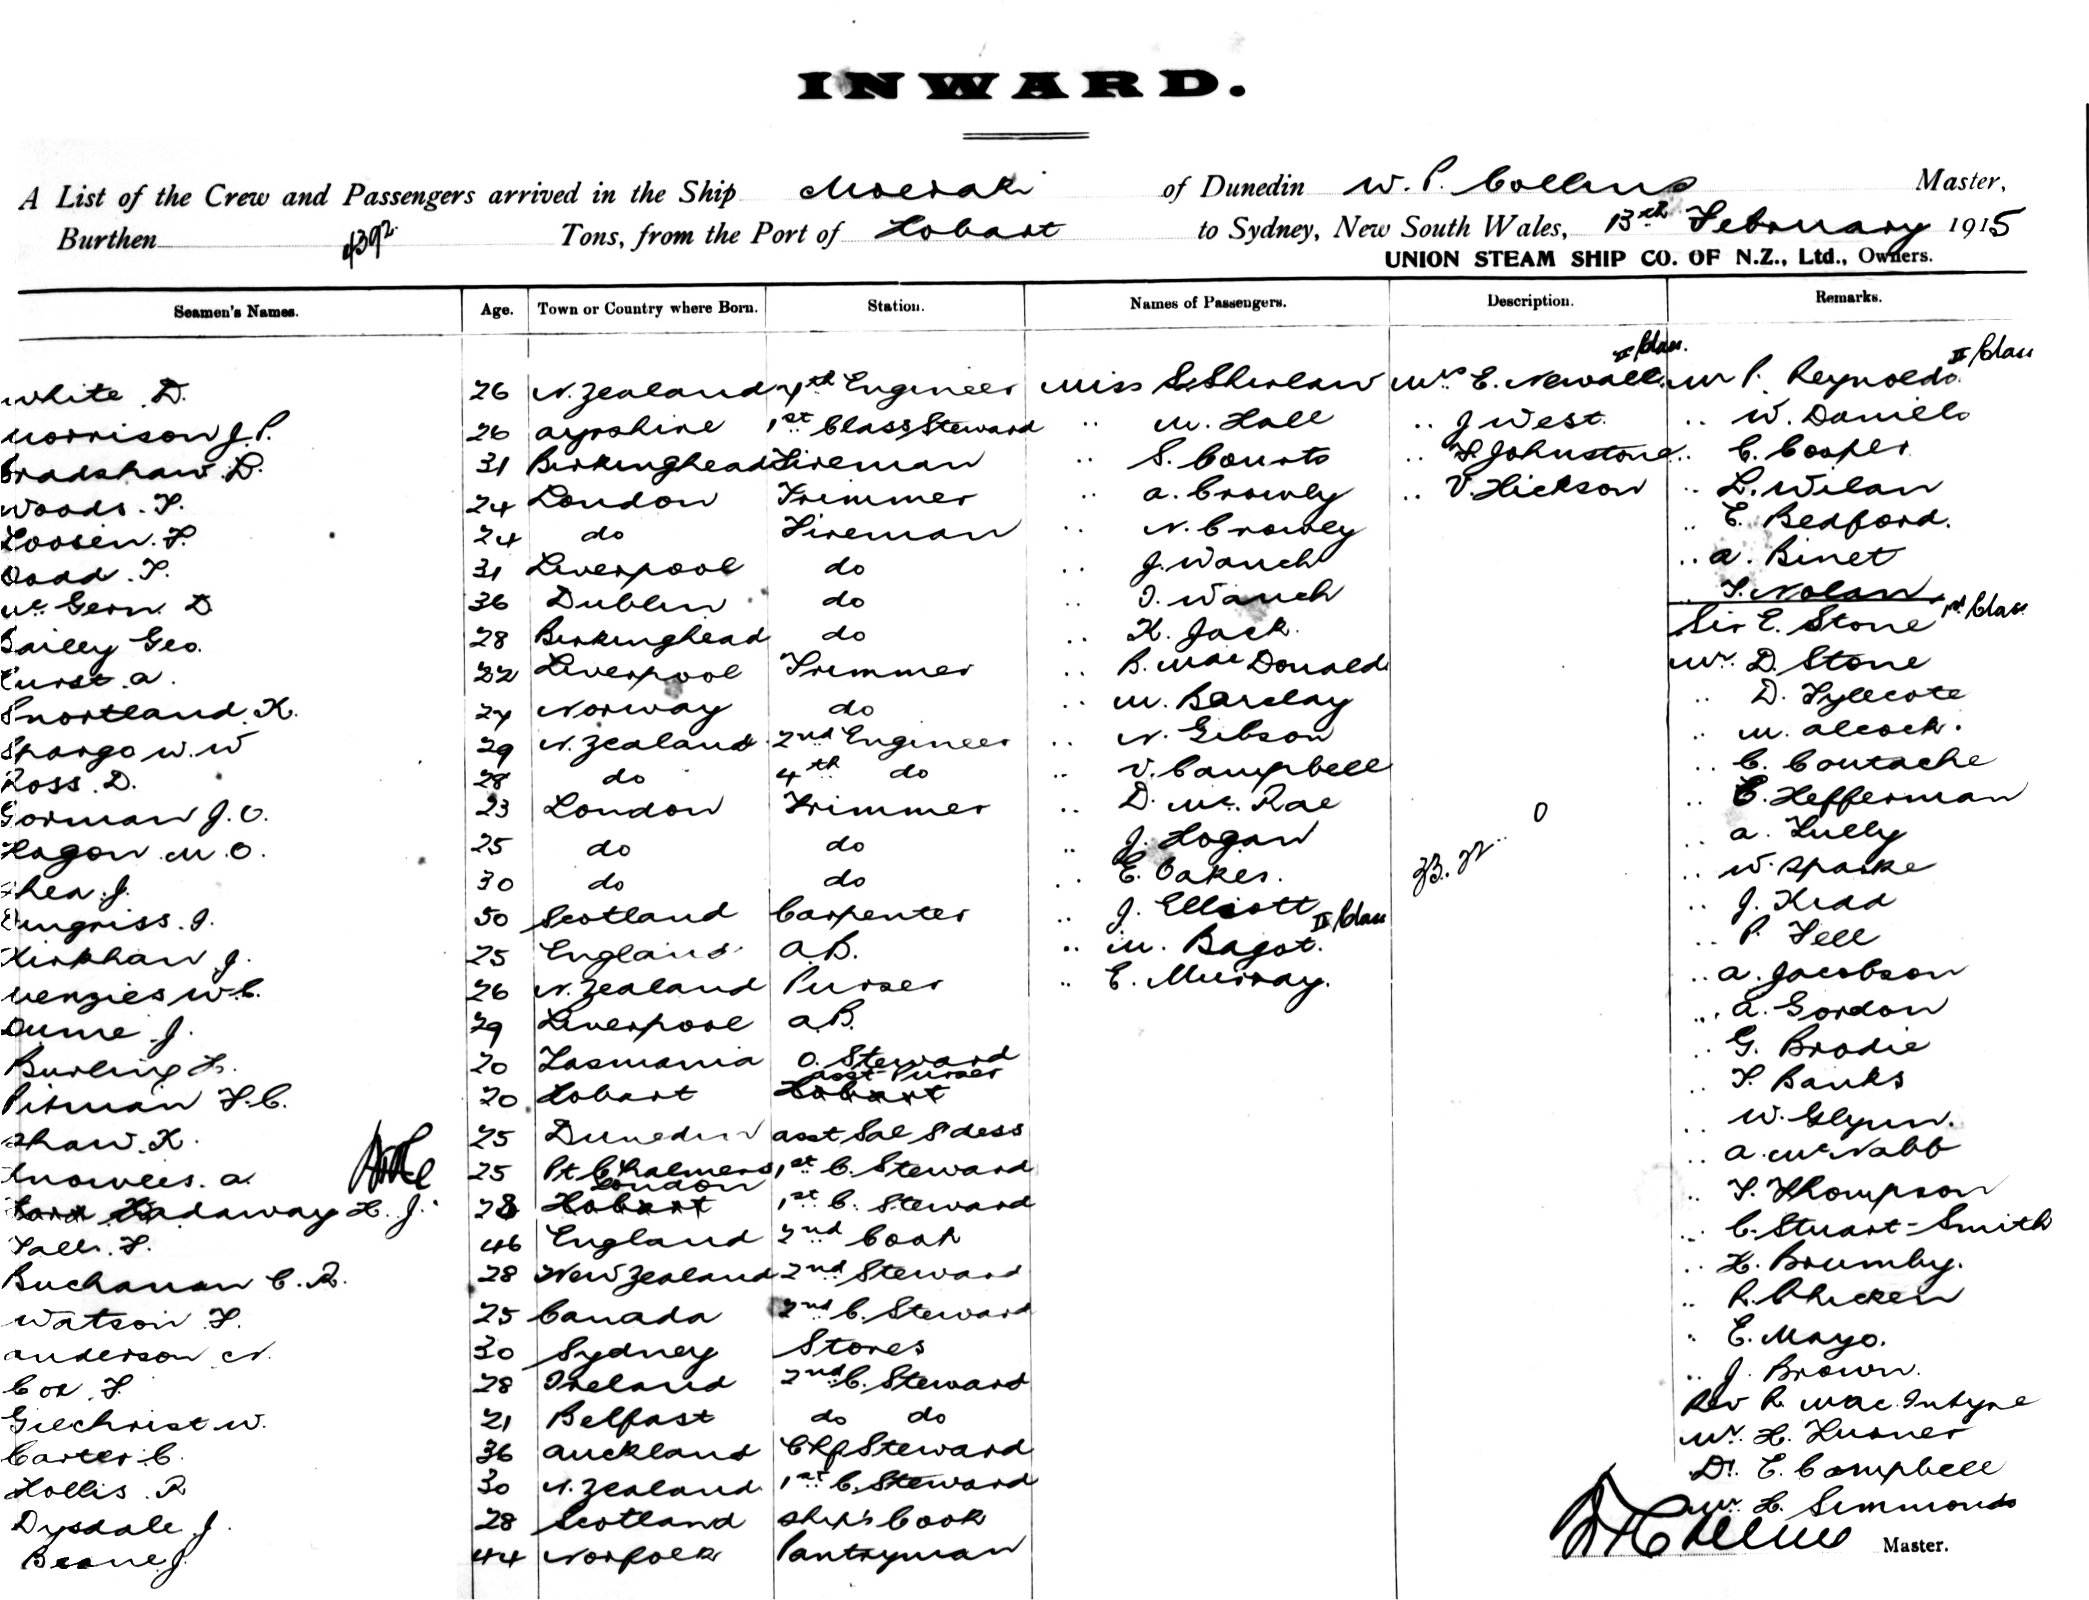 INWARD.
A List of the Crew and Passengers arrived in the Ship Moeraki of Dunedin W. P. Collins Master,
Burthen 4392 Tons, from the Port of Hobart to Sydney, New South Wales, 13th February 1915
UNION STEAM SHIP CO. OF N.Z., Ltd., Owners.
Seamen's Names. Age. Town or Country where Born. Station. Names of Passengers. Description. Remarks.
II Class. II Class
White D. 26 N. Zealand 4th Engineer Miss S. Shirlaw Mrs E. Newall Mr P. Reynolds
Morrison J. P. 26 Ayrshire 1st Class Steward .. M. Hall .. J West. .. W. Daniels
Bradshaw D. 31 Birkinghead Fireman .. S. Courts .. F Johnstone .. C. Cooper
Woods. F. 24 London Trimmer .. A. Crowly .. V. Hickson .. L. Wilan
Loosen. F. 24 do Fireman .. N. Crowley .. E. Bedford.
31 Liverpool do .. J. Wauch .. A. Binet
Mc Gern. D 36 Dublin do .. I. Wauch .. T. Nolan
Bailey Geo. 28 Birkinghead do .. K. Jack. Sir E. Stone 1st Class
Hurst. A. 22 Liverpool Trimmer .. B. Mac Donald Mr. D. Stone
Snortland K. 24 Norway do .. M. Barclay .. D. Tyllcote
Spargo W. W 29 N. Zealand 2nd Engineer .. N. Gibson .. M. Alcock.
Ross. D. 28 do 4th do .. V. Campbell .. C. Coutache
Gorman J. O. 23 London Trimmer .. D. Mc. Rae .. E. Hefferman
Hogan M. O. 25 do do .. J. Hogan .. A. Lully
Shea. J. 30 do do .. E. Oakes. .. W. Sparke
50 Scotland Carpenter .. J. Elliott .. J. Kidd
II Class
Kirkham J. 25 England A.B. .. M. Bagot. .. P. Fell
Menzies W. C. 26 N. Zealand Purser .. E. Murray. .. A. Jacobson
Dume J. 29 Liverpool A.B. .. A. Gordon
Burling 20 Tasmania O. Steward .. G. Brodie
asst Purser
Pitman F. C. 20 Hobart Hobart .. T. Banks
Shaw. K. 25 Dunedin asst Sal S'dess .. W. Glynn.
Knowles. A. 25 Pt Chalmers 1st C. Steward .. A. McNabb
London
Hadaway H. J. 28 Hobart 1st C. Steward .. T. Thompson
Falls. F. 46 England 2nd Cook .. C. Stuart-Smith
Buchanan C. R. 28 New Zealand 2nd Steward .. H. Brumby.
Watson F. 25 Canada 2nd C. Steward .. R. Chicken
Anderson N. 30 Sydney Stores .. E. Mayo.
Cox F. 28 Ireland 2nd C. Steward .. J. Brown.
Gilchrist W. 21 Belfast do do Rev R. MacIntyre
Carter C. 36 Auckland Steward Mr. H. Turner
Hollis. R 30 N. Zealand 1st C. Steward Dr. E. Campbell
Dysdale J. 28 Scotland Ship's Cook Mr. H. Simmonds
Beane J. 44 Norfolk Pantryman
Master.